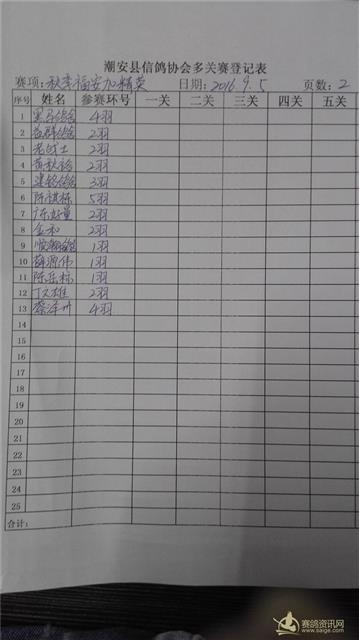 潮安县信鸽协会多关赛登记表
赛项: 秋季福安加精英 日期: 2016 9. 5 页数: 2
序号 姓名 参赛环号 一关 二关 三关 四关 五关
1 4羽
2 益群鸽舍 2羽
3 老战士 2羽
4 黄秋裕 2羽
5 建铭鸽舍 3羽
6 陈祺栋 5羽
7 2羽
8 金和 2羽
9 1羽
10 薛源伟 1羽
11 陈岳标 1羽
12 丁文雄 2羽
13 蔡泽州 4羽
14
15
16
17
18
19
20
21
22
23
24
25
合计:
赛鸽资讯网
www.saige.com